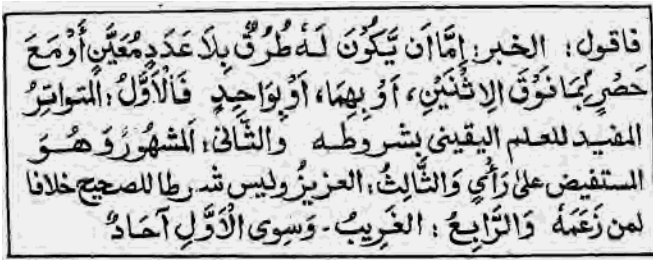 فاقول: الخبر: إِمَّا اَن يَّكُونَ لَهٗ طُرُقٌ بِلَا عَدَدٍ مُعَيَّنٍ أَوْ مَعَ
حَصْرٍ بِمَا فَوْقَ الِاثْنَيْنِ، اَوْ بِهِمَا، اَوْ بِوَاحِدٍ فَالْاَوَّلُ: المتواتِرُ
المفيد للعلم اليقينى بشروطه والثَّانِىْ: اَلمشهُورُ وَهُوَ
المستفيض علىٰ رَأْىٍ وَالثَّالِثُ: العزيزُ وليس شرطا للصحيح خلافا
لمن زَعَمَهٗ وَالرَّابِعُ: الغَرِيبُ ـ وَسِوَى الْاَوَّلِ آحَادٌ